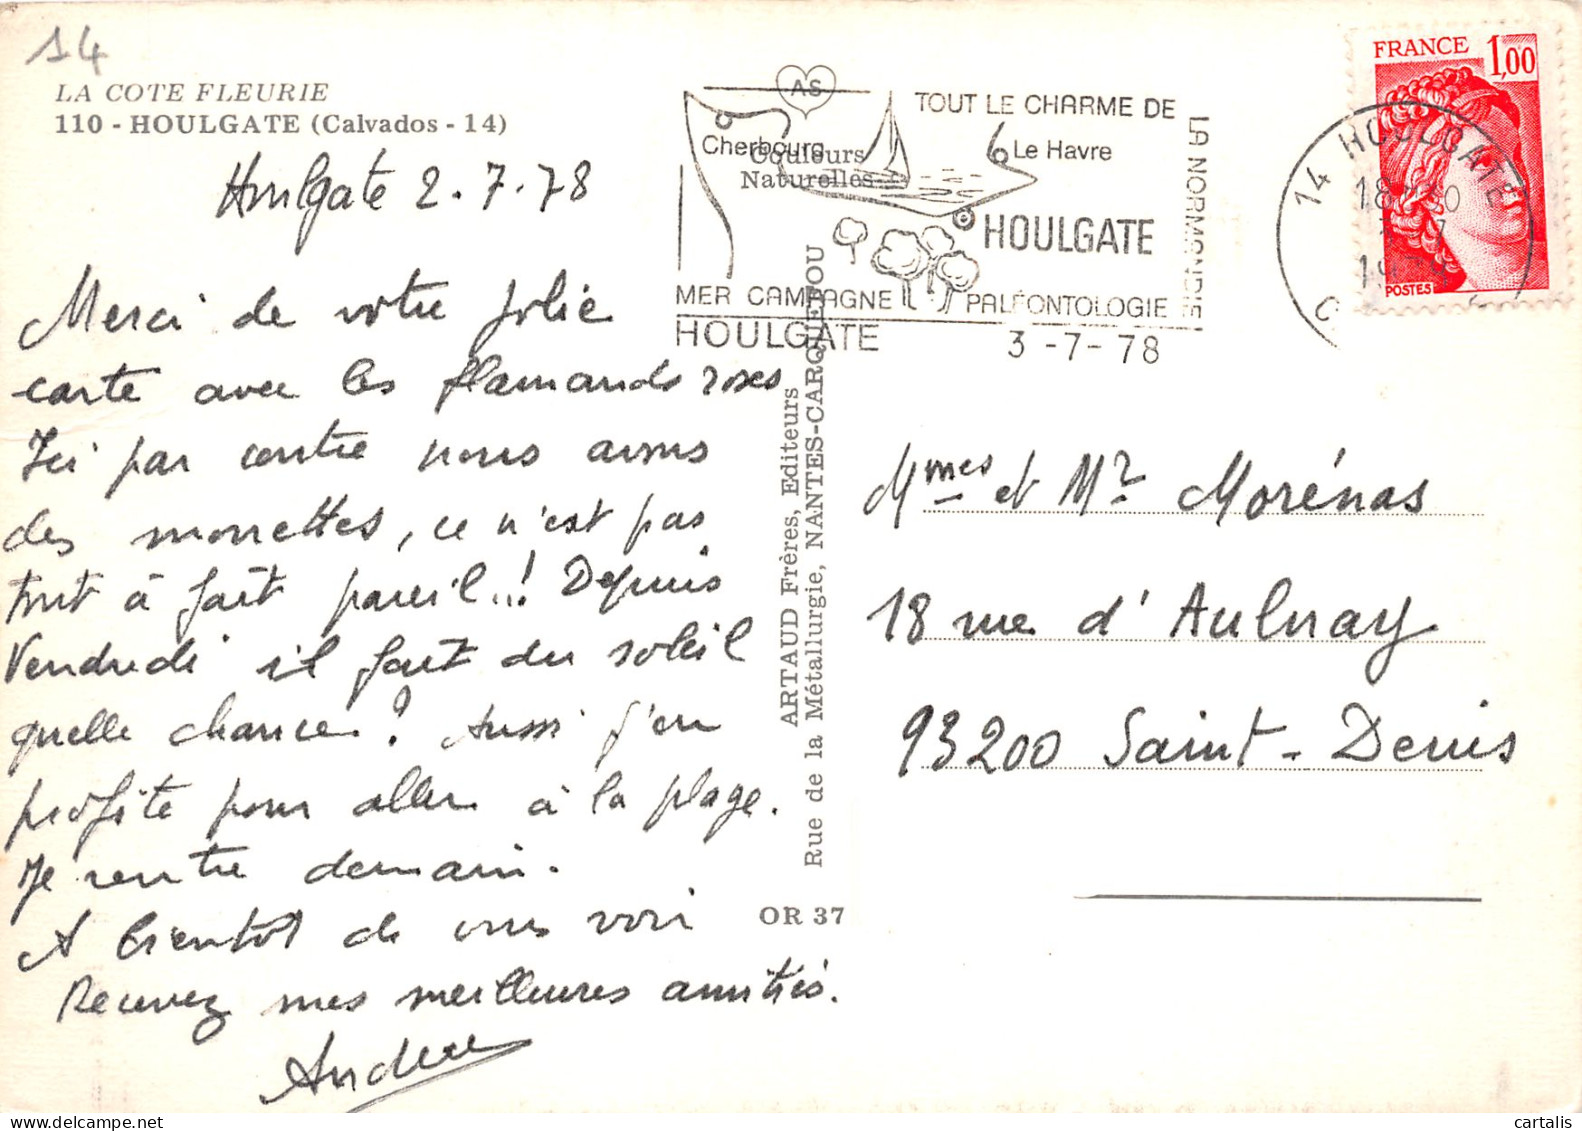 14
LA COTE FLEURIE
110 - HOULGATE (Calvados - 14)
Houlgate 2.7.78
Merci de votre jolie
carte avec les flamands roses
Ici par contre nous avons
des mouettes, ce n'est pas
tout à fait pareil..! Depuis
Vendredi il fait du soleil
quelle chance! Aussi j'en
profite pour aller à la plage.
Je rentre demain.
A bientôt de vous voir
Recevez mes meilleures amitiés.
Andrée
AS
Couleurs
Naturelles
TOUT LE CHARME DE
LA NORMANDIE
Cherbourg
Le Havre
HOULGATE
MER CAMPAGNE PALÉONTOLOGIE
HOULGATE
3-7-78
FRANCE 1,00
POSTES
14 HOULGATE
ARTAUD Frères, Editeurs
Rue de la Métallurgie, NANTES-CARQUEFOU
OR 37
Mmes et Mr Morénas
18 rue d'Aulnay
93200 Saint-Denis
cartalis